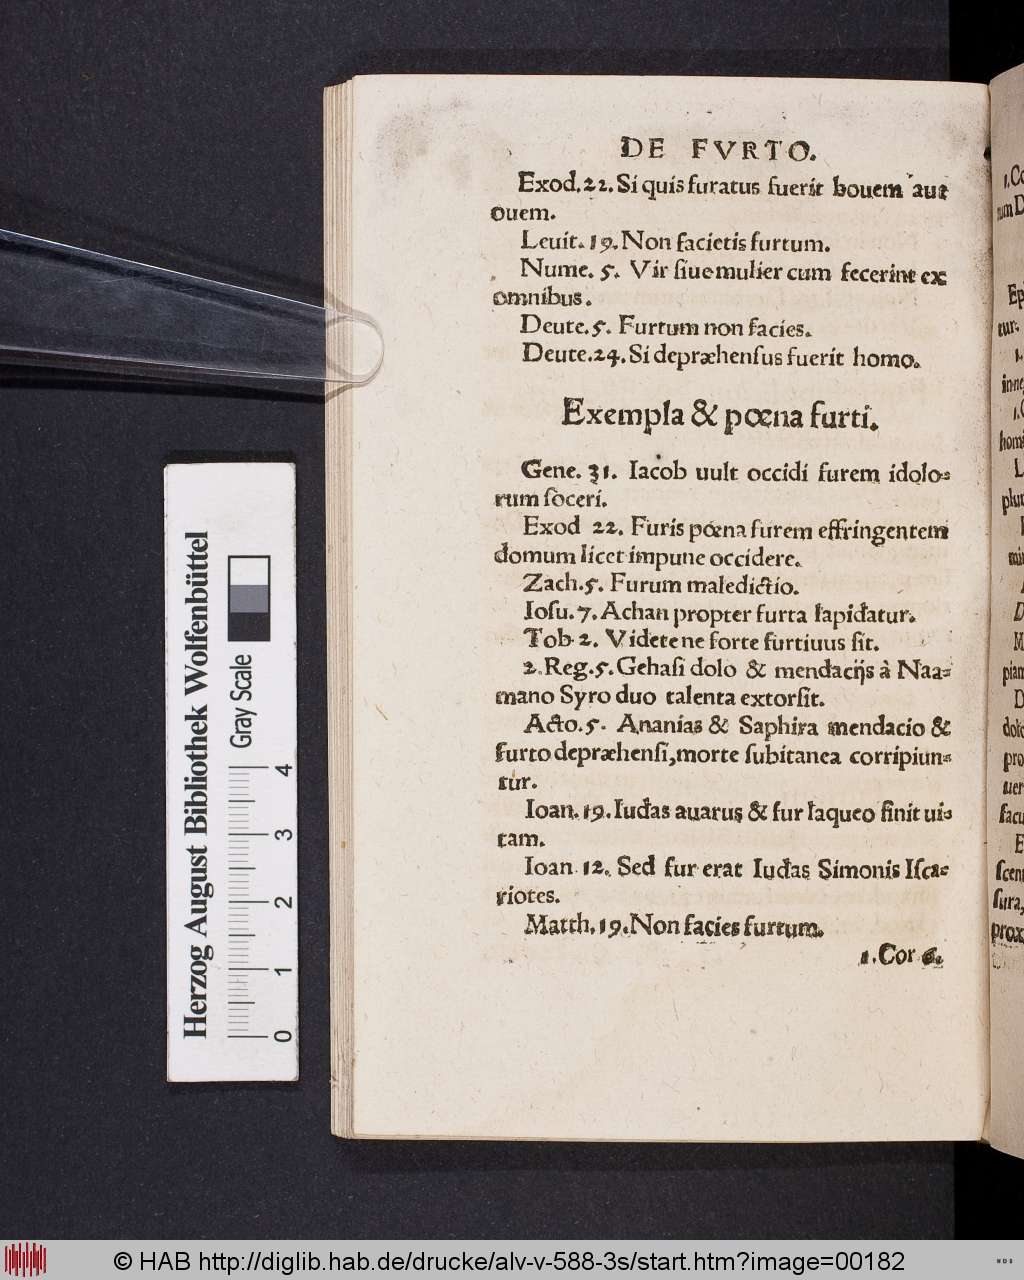 DE FVRTO.
Exod. 22. Si quis furatus fuerit bouem aut
ouem.
Leuit. 19. Non facietis furtum.
Nume. 5. Vir siue mulier cum fecerint ex
omnibus.
Deute. 5. Furtum non facies.
Deute. 24. Si depræhensus fuerit homo.
Exempla & pœna furti.
Gene. 31. Iacob uult occidi furem idolo-
rum soceri.
Exod 22. Furis pœna furem effringentem
domum licet impune occidere.
Zach. 5. Furum maledictio.
Iosu. 7. Achan propter furta lapidatur.
Tob 2. Videte ne forte furtiuus sit.
2. Reg. 5. Gehasi dolo & mendacijs à Naa-
mano Syro duo talenta extorsit.
Acto. 5. Ananias & Saphira mendacio &
furto depræhensi, morte subitanea corripiun-
tur.
Ioan. 19. Iudas auarus & fur laqueo finit ui-
tam.
Ioan 12. Sed fur erat Iudas Simonis Isca-
riotes.
Matth. 19. Non facies furtum.
1. Cor 6.
Herzog August Bibliothek Wolfenbüttel
Gray Scale
0 1 2 3 4
© HAB http://diglib.hab.de/drucke/alv-v-588-3s/start.htm?image=00182